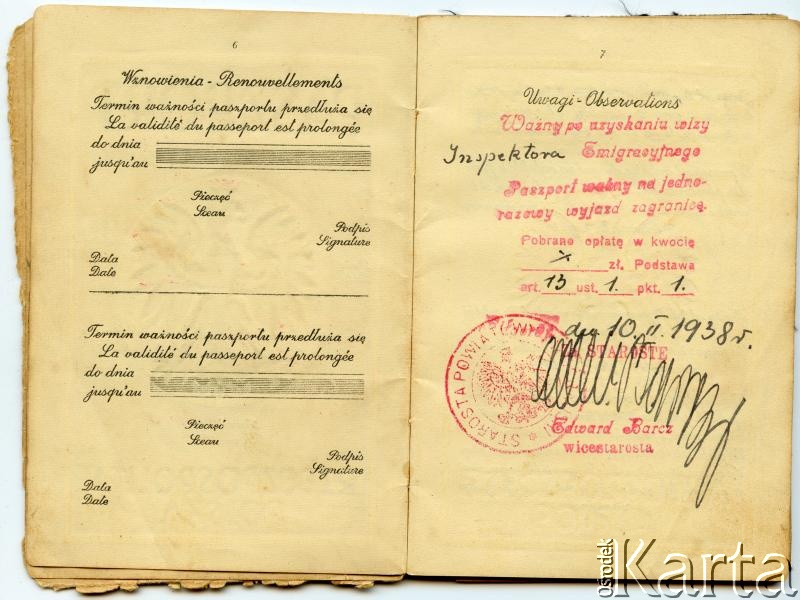 6
Wznowienia - Renouvellements
Termin ważności paszportu przedłuża się
La validité du passeport est prolongée
do dnia
jusqu'au
Pieczęć
Sceau
Podpis
Signature
Data
Date
Termin ważności paszportu przedłuża się
La validité du passeport est prolongée
do dnia
jusqu'au
Pieczęć
Sceau
Podpis
Signature
Data
Date
7
Uwagi - Observations
Ważny po uzyskaniu wizy
Inspektora Emigracyjnego
Paszport ważny na jedno-
razowy wyjazd zagranicę.
Pobrano opłatę w kwocie
x zł. Podstawa
art. 13 ust. 1. pkt. 1.
dn. 10 II. 1938 r.
ZA STAROSTĘ
STAROSTA POWIATOWY
Edward Barcz
wicestarosta
ośrodek Karta